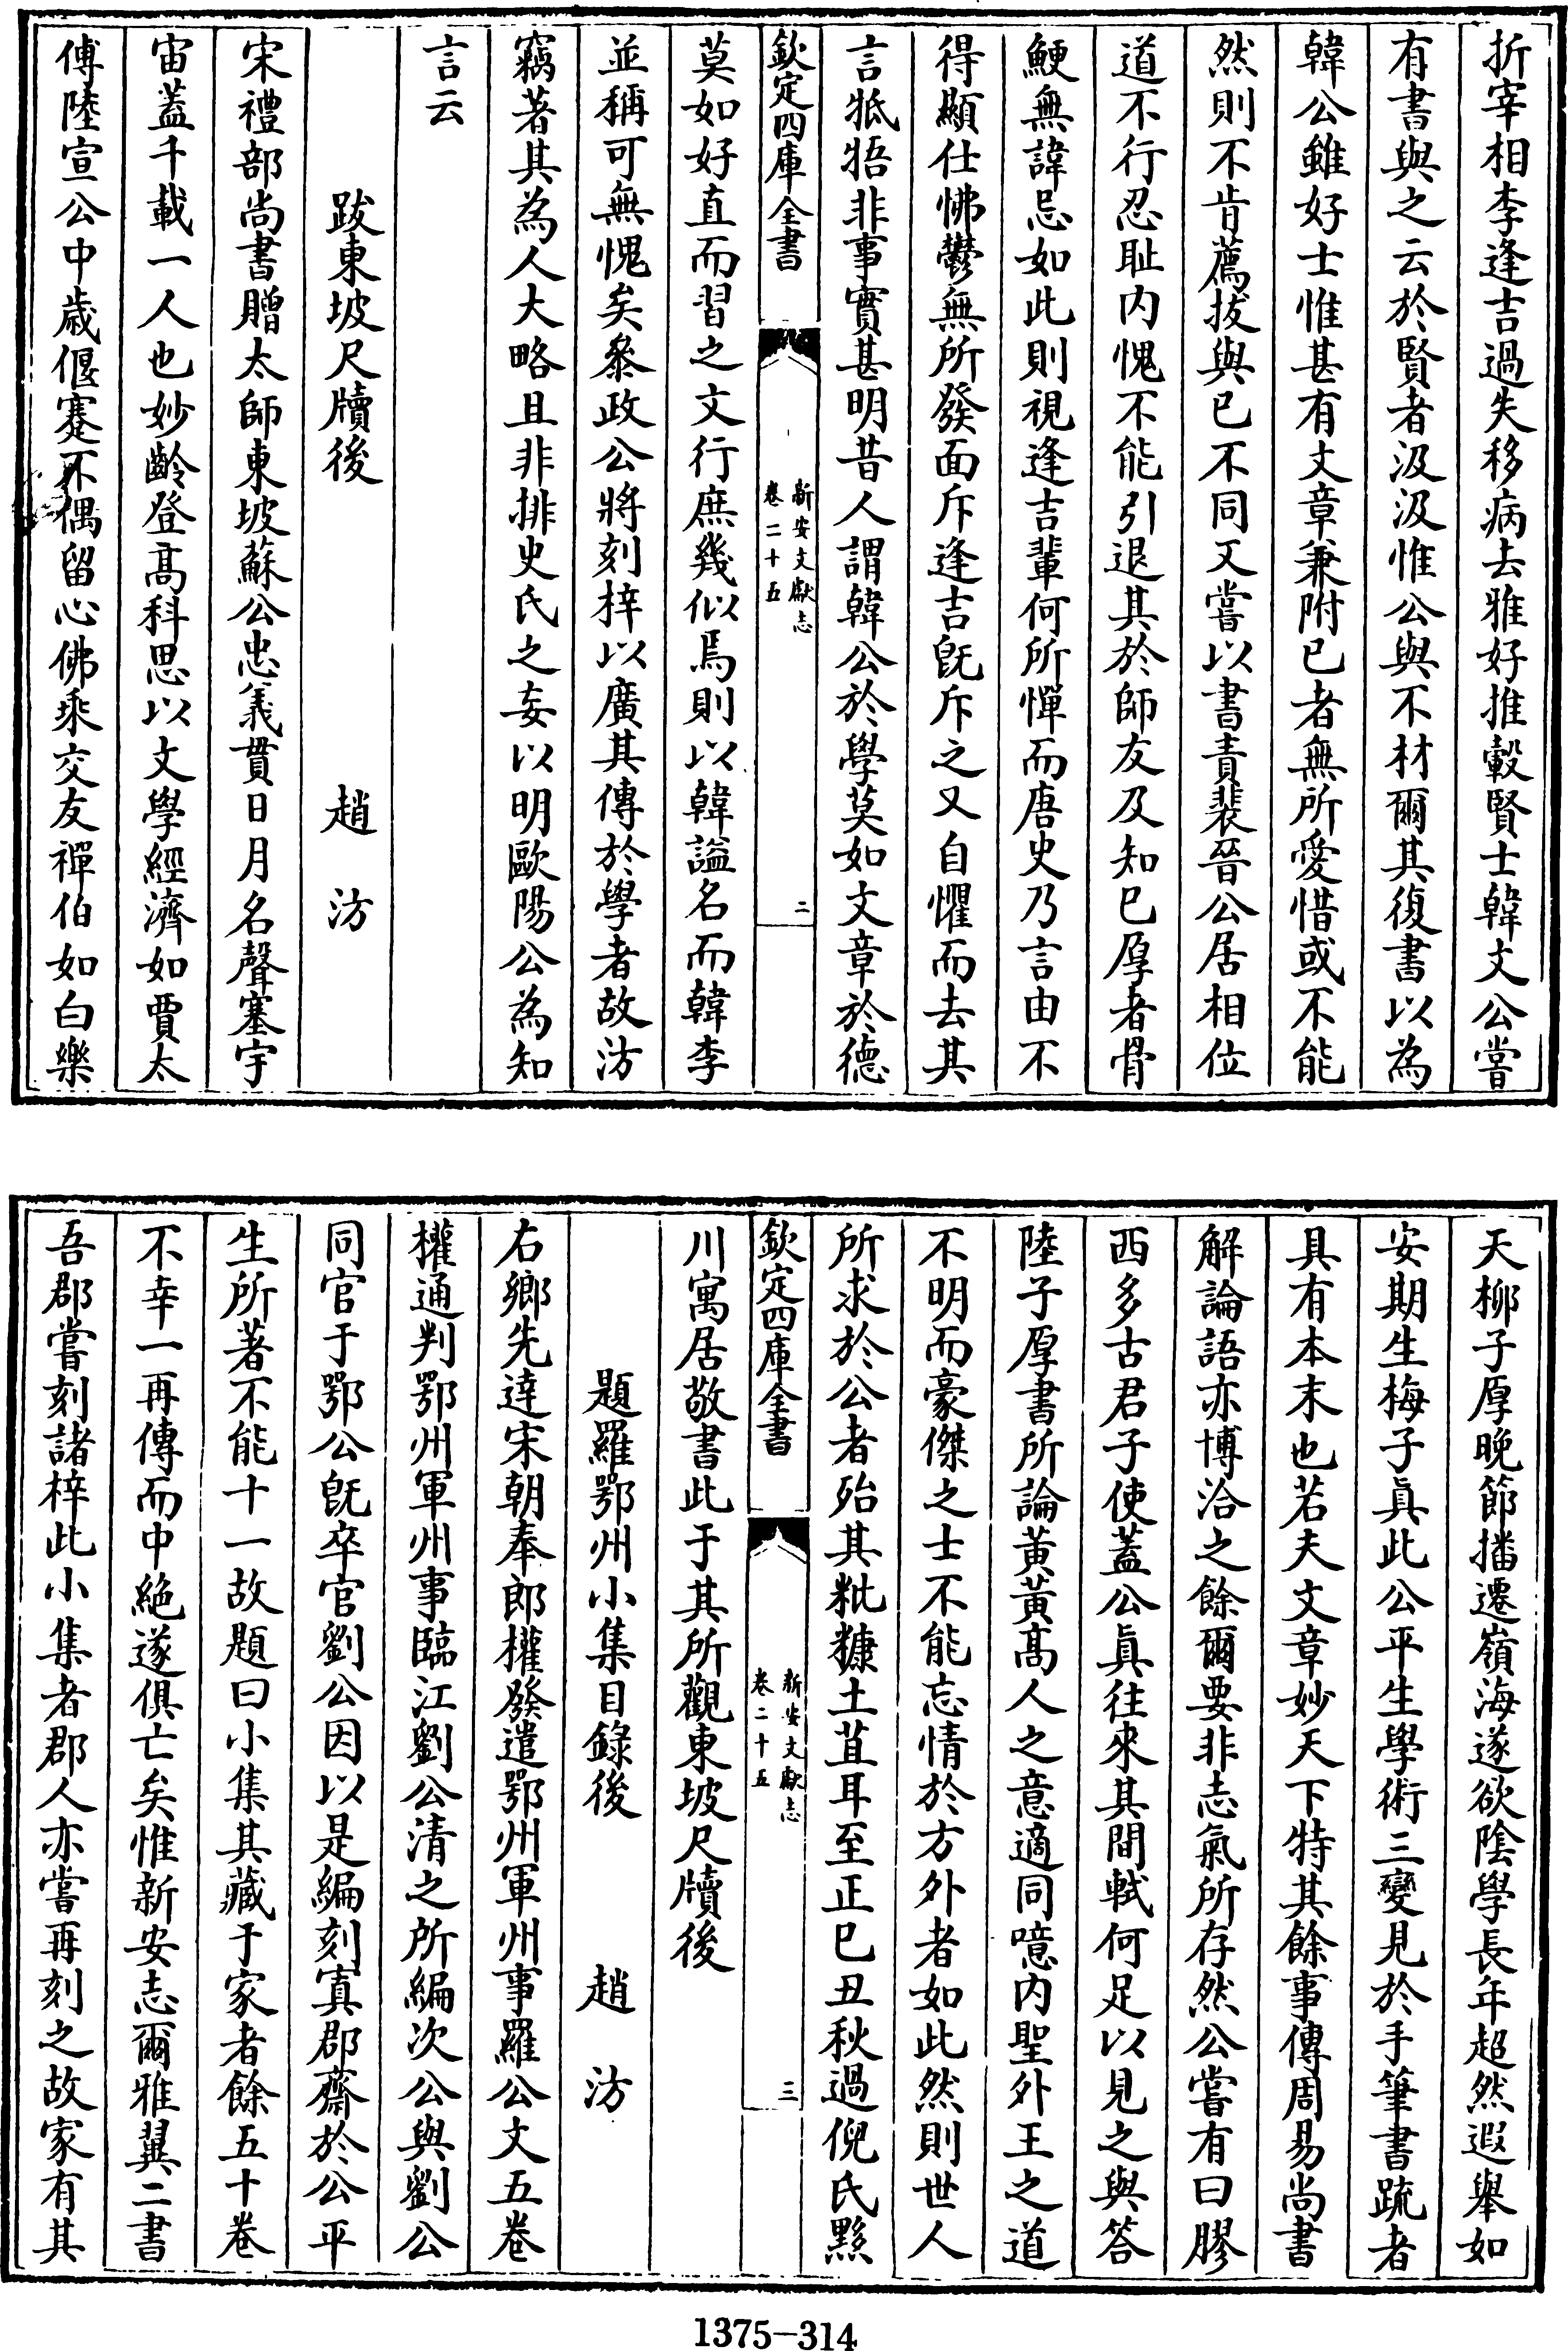 折宰相李逢吉過失移病去雅好推轂賢士韓文公嘗
有書與之云於賢者汲汲惟公與不材爾其復書以為
韓公雖好士惟甚有文章兼附已者無所愛惜或不能
然則不肯薦拔與已不同又嘗以書責裴晉公居相位
道不行忍恥内愧不能引退其於師友及知已厚者骨
鯁無諱忌如此則視逢吉輩何所憚而唐史乃言由不
得顯仕怫鬱無所發面斥逢吉旣斥之又自懼而去其
言牴牾非事實甚明昔人謂韓公於學莫如文章於德
欽定四庫全書
新安文獻志
卷二十五
二
莫如好直而習之文行庶幾似焉則以韓諡名而韓李
並稱可無愧矣叅政公將刻梓以廣其傳於學者故汸
竊著其為人大略且非排史氏之妄以明歐陽公為知
言云
跋東坡尺牘後
趙汸
宋禮部尚書贈太師東坡蘇公忠義貫日月名聲塞宇
宙蓋千載一人也妙齡登髙科思以文學經濟如賈太
傅陸宣公中歲偃蹇不偶留心佛乘交友禪伯如白樂
天栁子厚晚節播遷嶺海遂欲隂學長年超然遐舉如
安期生梅子眞此公平生學術三變見於手筆書疏者
具有本末也若夫文章妙天下特其餘事傳周易尚書
解論語亦博洽之餘爾要非志氣所存然公嘗有曰膠
西多古君子使蓋公眞往來其間軾何足以見之與答
陸子厚書所論黄黄髙人之意適同噫内聖外王之道
不明而豪傑之士不能忘情於方外者如此然則世人
所求於公者殆其粃糠土苴耳至正巳丑秋過倪氏黟
欽定四庫全書
新安文獻志
卷二十五
三
川寓居敬書此于其所觀東坡尺牘後
題羅鄂州小集目錄後
趙汸
右鄉先達宋朝奉郎權發遣鄂州軍州事羅公文五卷
權通判鄂州軍州事臨江劉公清之所編次公與劉公
同官于鄂公旣卒官劉公因以是編刻寘郡齋於公平
生所著不能十一故題曰小集其藏于家者餘五十卷
不幸一再傳而中絶遂俱亡矣惟新安志爾雅翼二書
吾郡嘗刻諸梓此小集者郡人亦嘗再刻之故家有其
1375-314